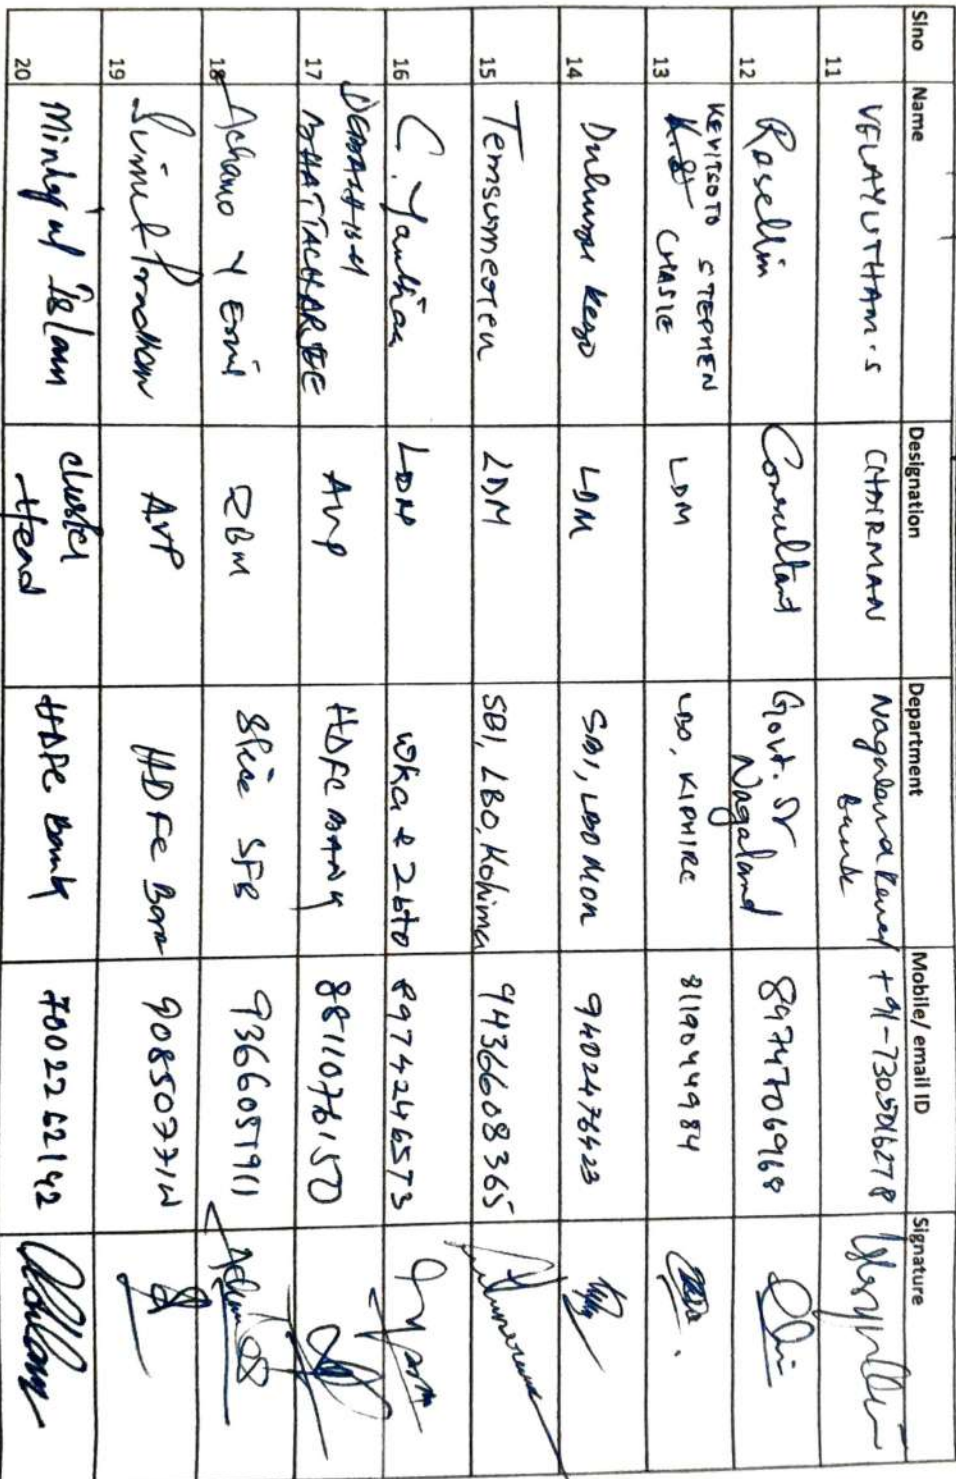 Slno Name Designation Department Mobile/ email ID Signature
11 VELAYUTHAM.S CHAIRMAN Nagaland Rural Bank +91-7305016278
12 Rosellin Consultant Govt. of Nagaland 8974706968
13 KEVITSOTO STEPHEN CHASIE LDM LBO, KIPHIRE 8119044984
14 Kezo LDM SBI, LBO MON 9402476423
15 Temsumeren LDM SBI, LBO, Kohima 9436608365
16 C. Yanthan LDM Wokha & Zbto 8974246573
17 DEBASHISH BHATTACHARJEE AVP HDFC BANK 8811076150
18 Achano Y Ezni ZBM Slice SFB 9366051911
19 Sumit Pradhan AVP HDFC Bank
20 Minhajul Islam Cluster Head HDFC Bank 7002262142